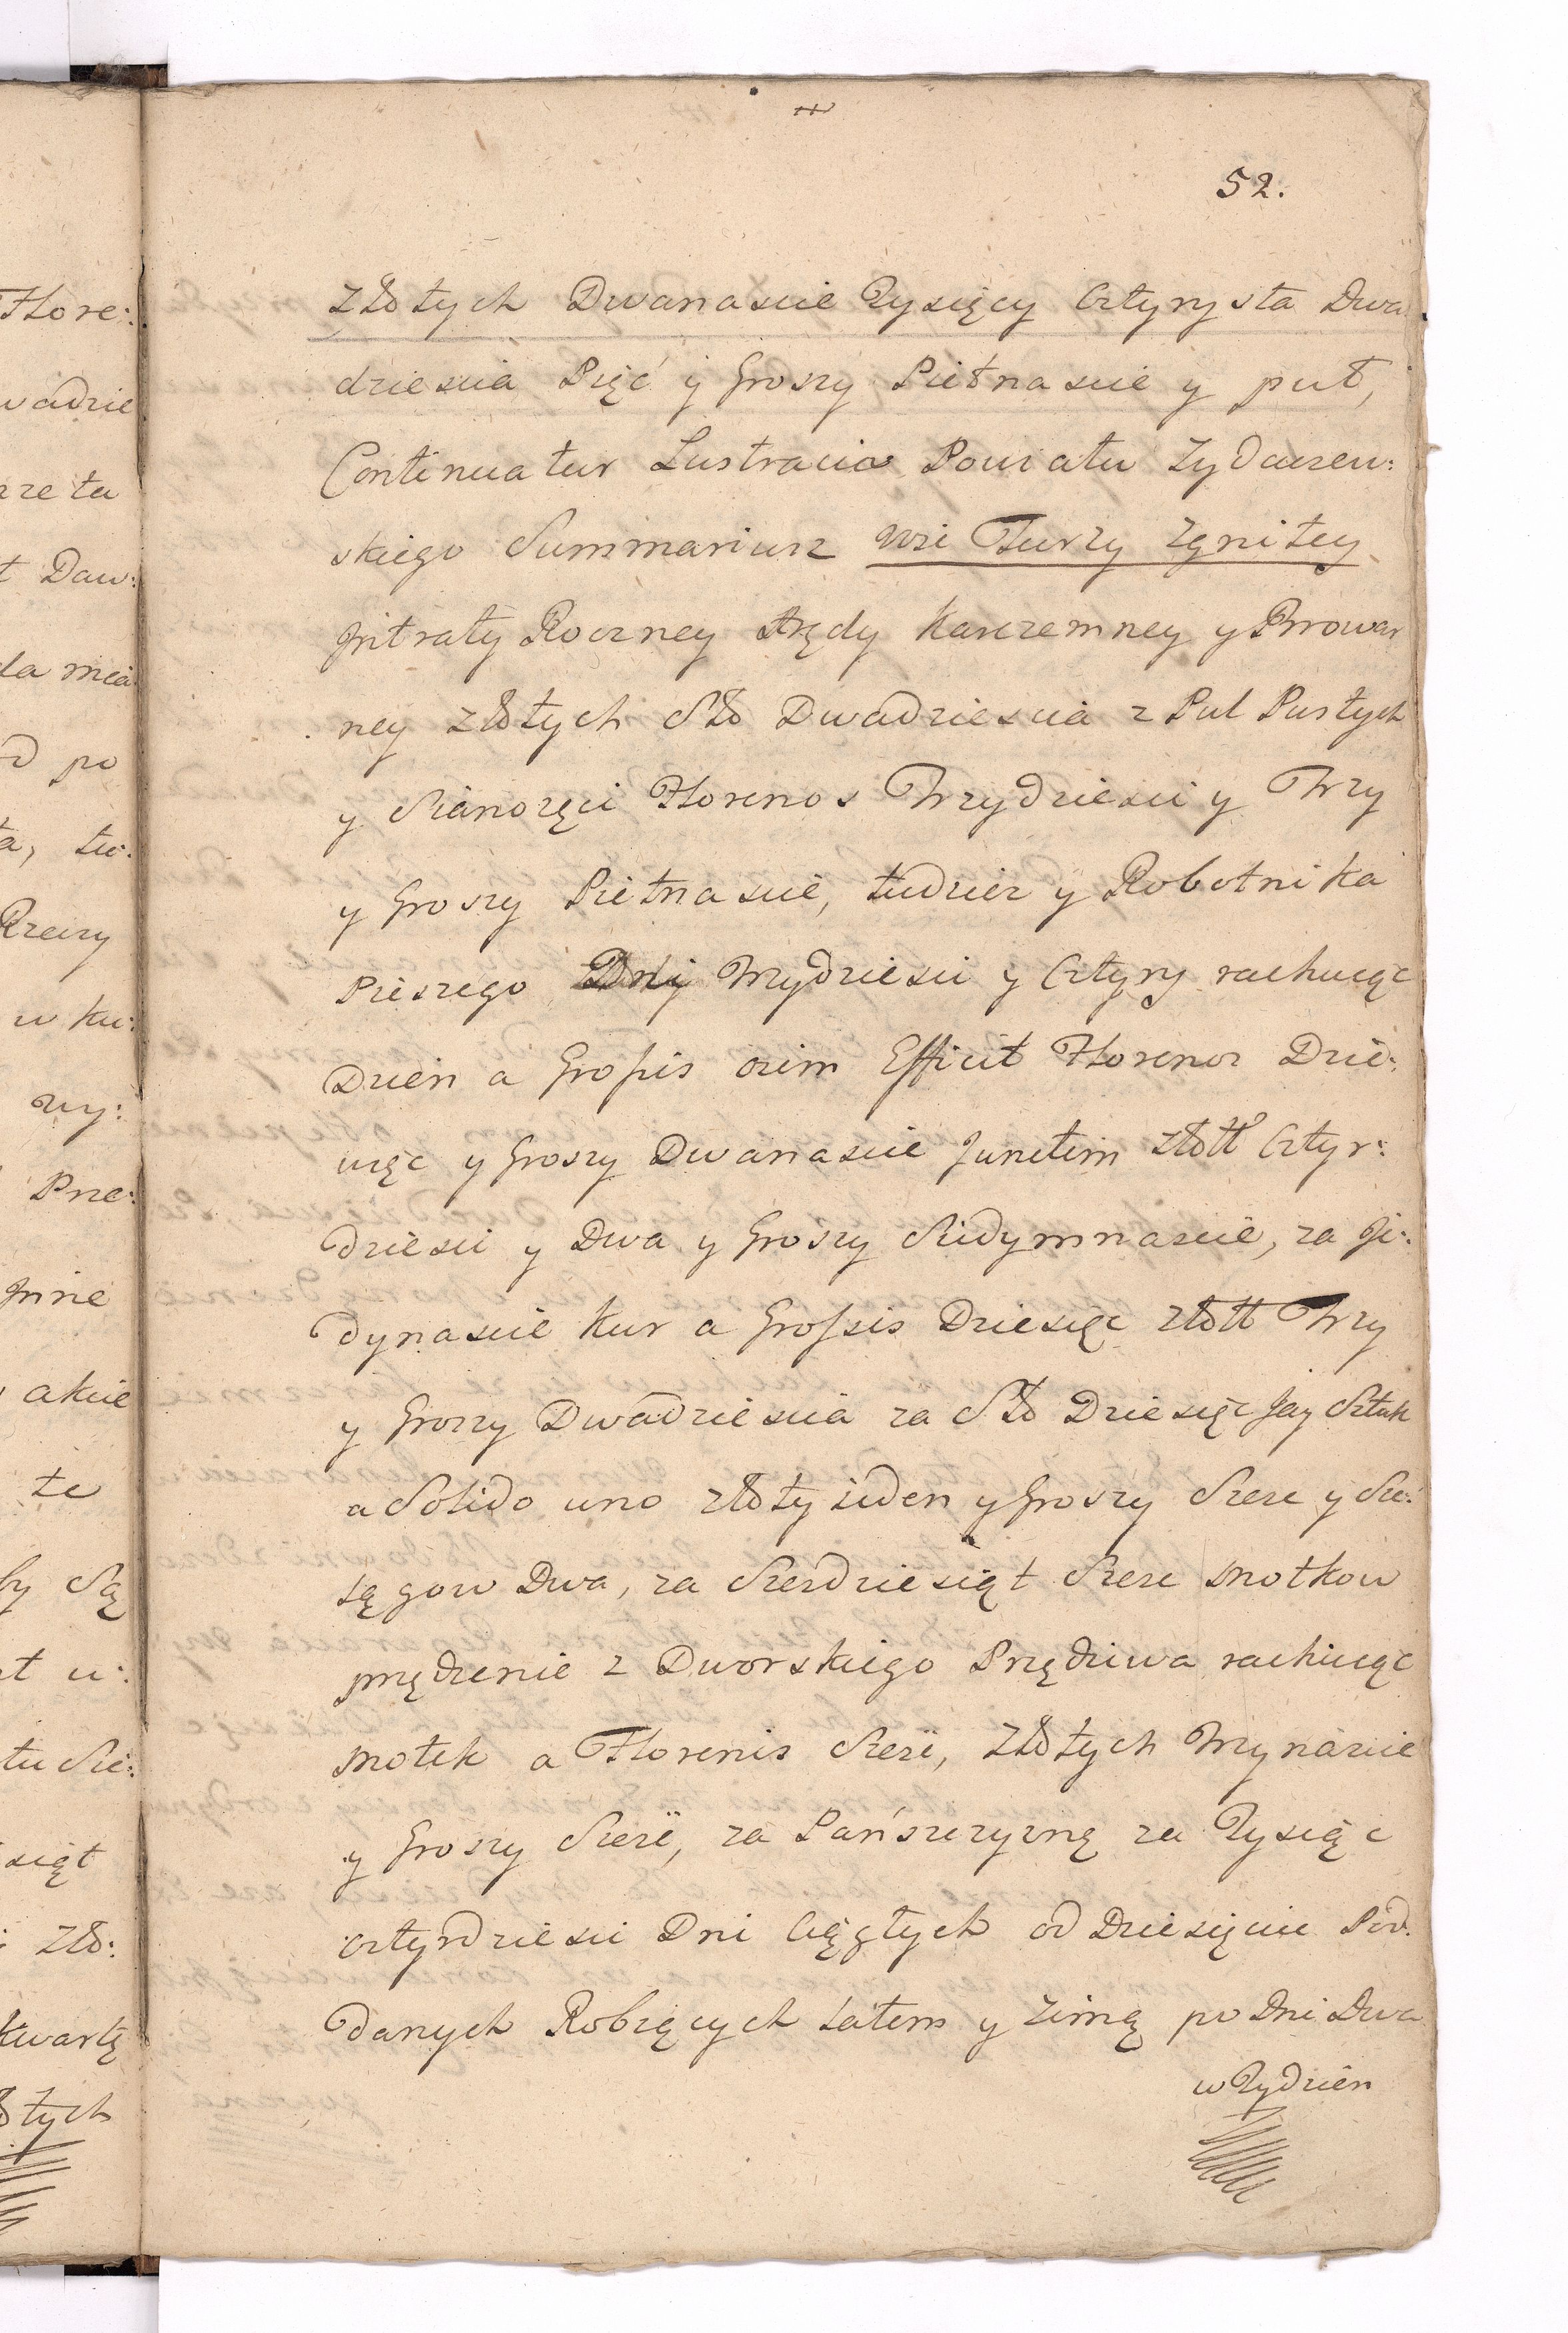 52.
Złotych Dwanascie Tysięcy Cztyrysta Dwa
dziescia Pięć y Groszy Pietnascie y puł,
Continuatur Lustracia Powiatu Zydaczew:
skiego Summariusz wsi Turzy Zgniłey
Jntraty Roczney Arędy Karczemney y Browar
ney Złotych Sto Dwadziescia z Pul Pustych
y Sianozęci Florenos Trzydziesci y Trzy
y Groszy Pietnascie, tudziez y Robotnika
Pieszego Dni Trzydziesci y Cztyry rachuiąc
Dzien a Grossis osim Efficit Florenos Dzie:
więc y Groszy Dwanascie Junctim Złott Cztyr:
dziesci y Dwa y Groszy Sidymnascie, za Ji:
dynascie Kur a Grossis Dziesięc Złott Trzy
y Groszy Dwadziescia za Sto Dziesięc Jay Sztuk
a Solido uno Złoty ieden y Groszy Szesc y Sze:
lągow Dwa, za Szesdziesiąt Szesc Motkow
przędzenie z Dworskiego Przędziwa rachuiąc
Motek a Florenis Szesc, Złotych Trzynascie
y Groszy Szesc, za Pańszczyznę za Tysiąc
cztyrdziesci Dni Ciągłych od Dziesięciu Pod:
danych Robiących Latem y Zimą po Dni Dwa
w Tydzien
Flore:
wadzie
t Daw:
da mea
d po
a, tu:
Rzeczy
w ku:
wy:
Prze:
Jnne
akcie
te
by Są
t u:
tu Sze:
siąt
Zło:
kwartę
tych